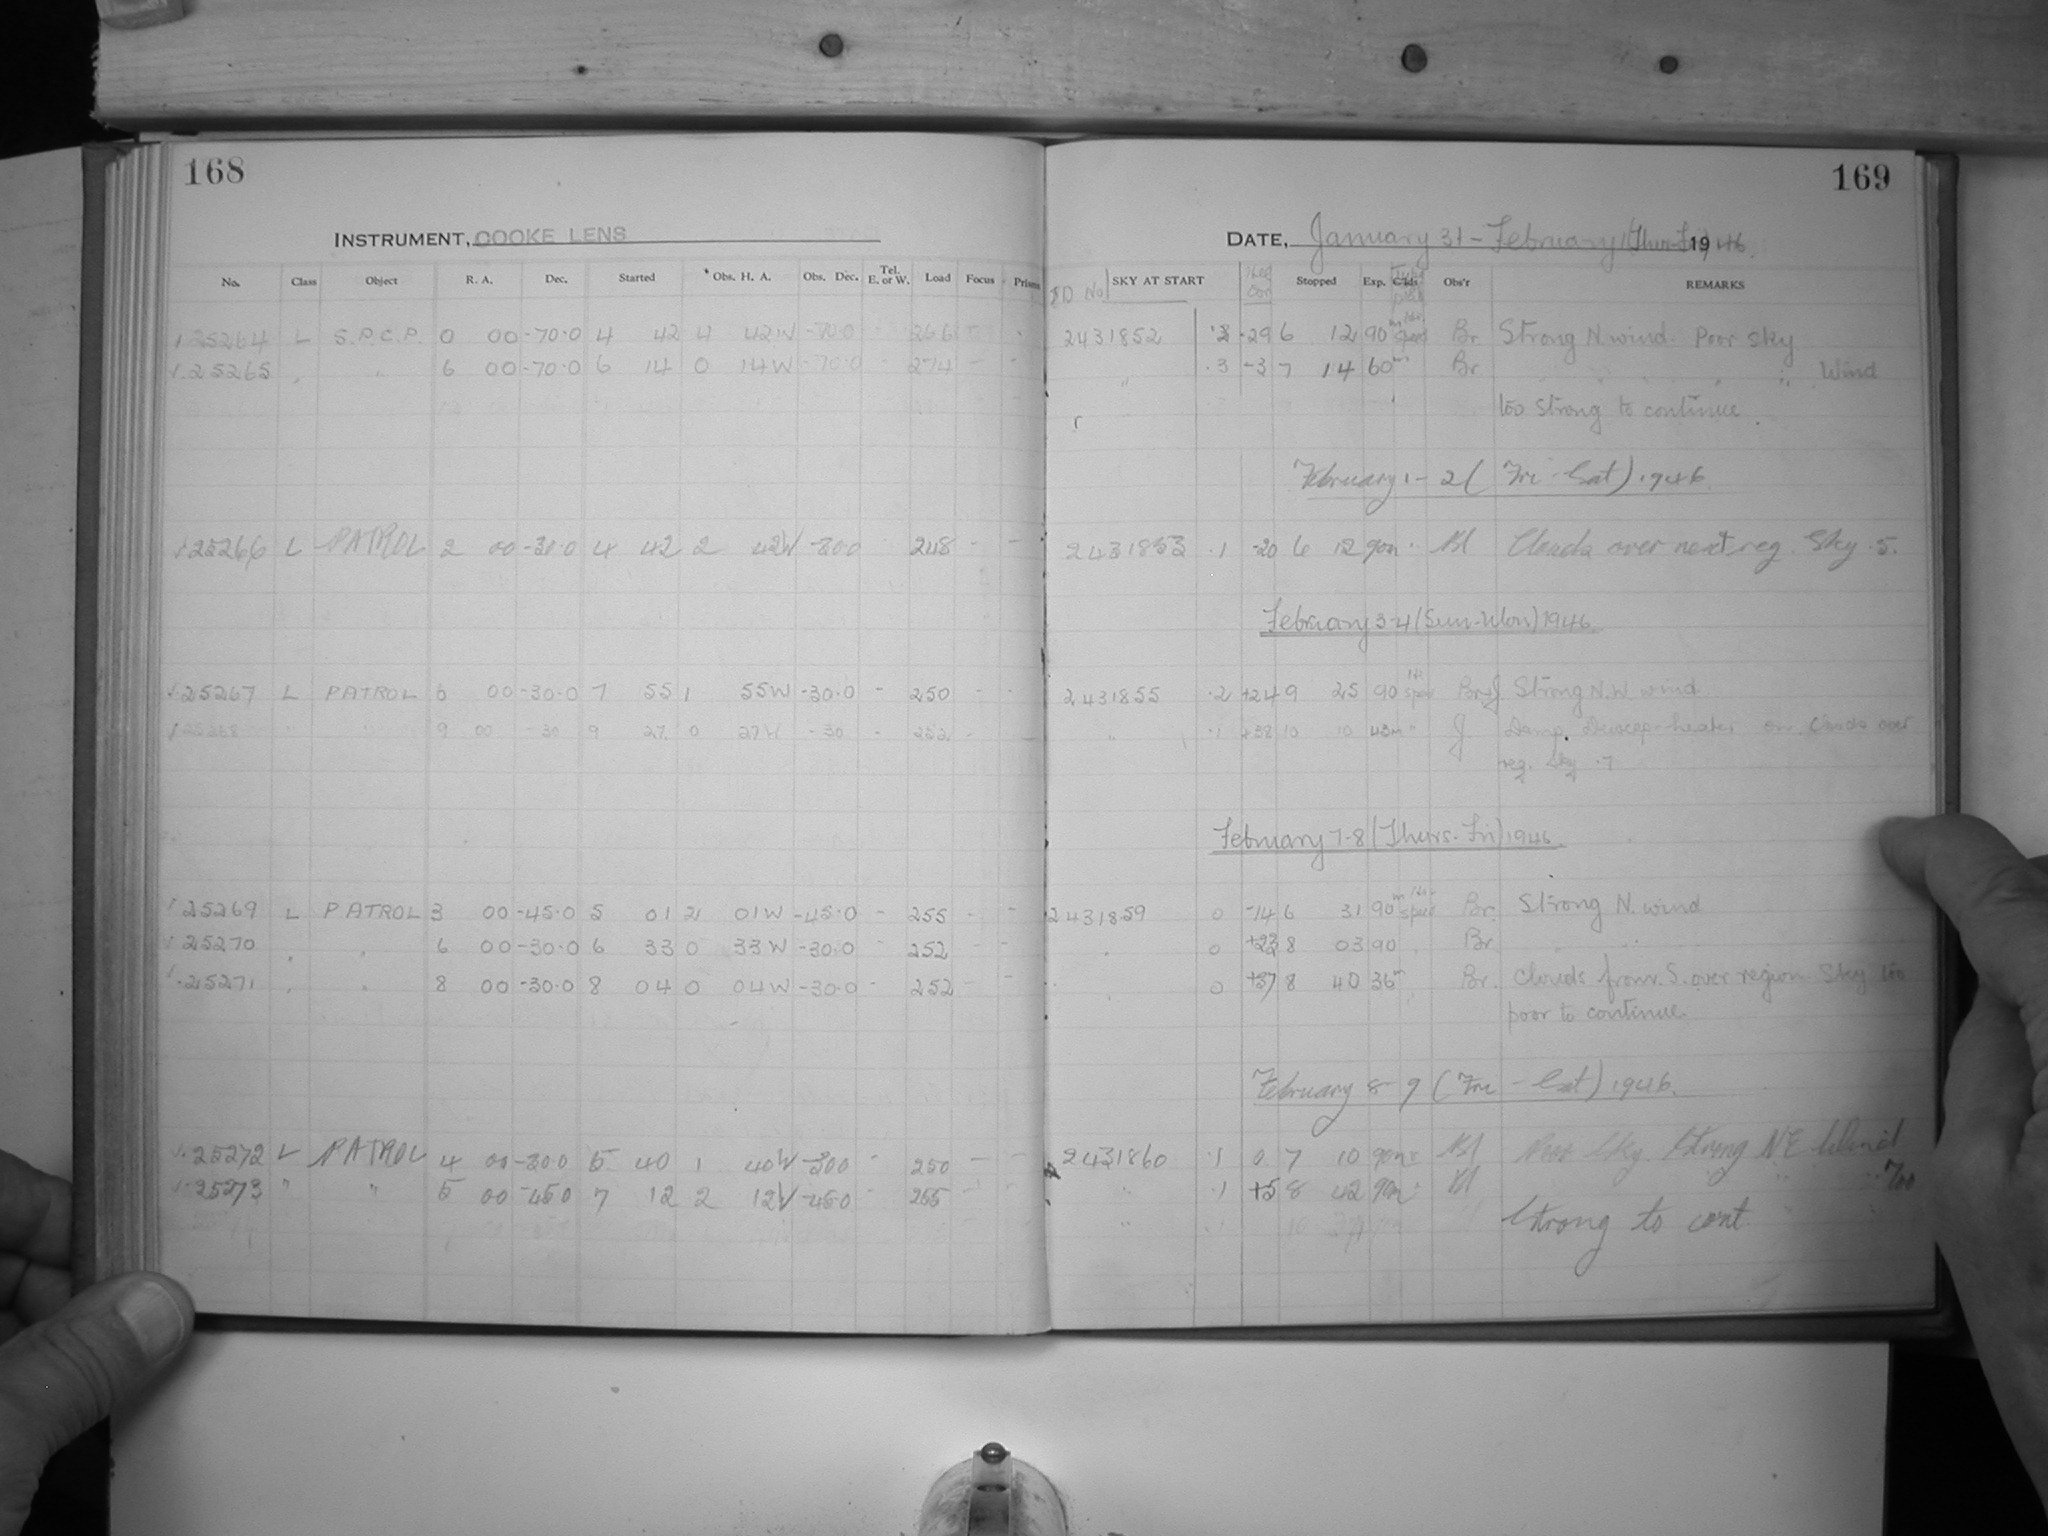 168
INSTRUMENT, COOKE LENS
No. Class Object R. A. Dec. Started Obs. H. A. Obs. Dec. Tel. E. or W. Load Focus Prism
25264 L S.P.C.P. 0 00 -70.0 4 42 4 42W -70.0 266
25265 " " 6 00 -70.0 6 14 0 14W -70.0 274 - -
25266 L PATROL 2 00 -30.0 4 42 2 42W -30.0 248 - -
25267 L PATROL 6 00 -30.0 7 55 1 55W -30.0 - 250 - -
25268 " " 9 00 -30 9 27 0 27W -30 - 252 -
25269 L PATROL 3 00 -45.0 5 01 2 01W -45.0 - 255 - -
25270 " " 6 00 -30.0 6 33 0 33W -30.0 - 252 - -
25271 " " 8 00 -30.0 8 04 0 04W -30.0 - 252 - -
25272 L PATROL 4 00 -30.0 5 40 1 40W -30.0 - 250 - -
25273 " " 5 00 -45.0 7 12 2 12W -45.0 - 255 - -
169
DATE, January 31 - February 1 (Thur-Fri) 1946.
JD No SKY AT START Stopped Exp. Obs'r REMARKS
2431852 .3 -29 6 12 90m Br Strong N. wind. Poor sky
" .3 -3 7 14 60m Br " " " " " Wind
too strong to continue
February 1-2 (Fri-Sat) 1946.
2431853 .1 -20 6 12 90m " Bl Clouds over next reg. Sky .5.
February 3-4 (Sun-Mon) 1946.
2431855 .2 +24 9 25 90 Br-J Strong N.W. wind
" .1 +38 10 10 43m " J. Damp. Dewcap-heater on. Clouds over
reg. Sky .7
February 7-8 (Thurs-Fri) 1946.
2431859 0 -14 6 31 90m Br. Strong N. wind
" 0 +23 8 03 90 " Br. " "
" 0 +37 8 40 36m " Br. Clouds from S. over region Sky too
poor to continue
February 8-9 (Fri-Sat) 1946.
2431860 .1 0 7 10 90m " Bl Poor Sky Strong NE Wind
" .1 +5 8 42 90m " Bl " " Too
Strong to cont